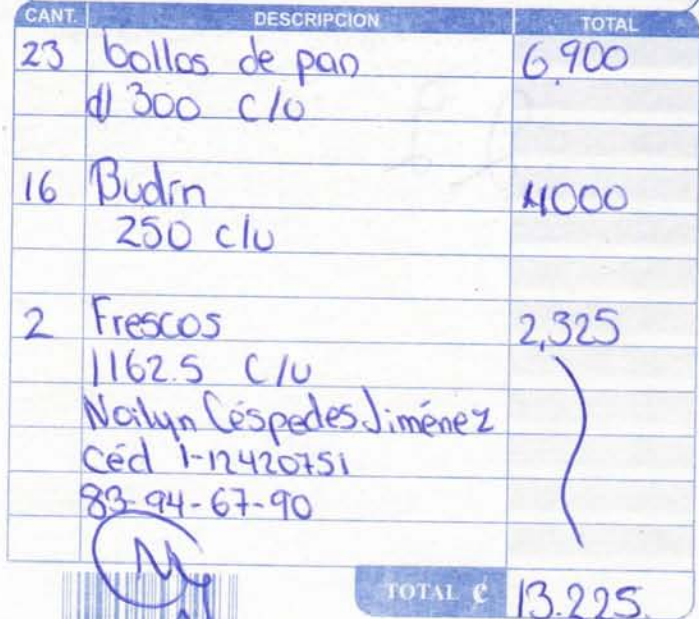 CANT. DESCRIPCION TOTAL
23 bollos de pan 6,900
d/ 300 c/u
16 Budín 4000
250 c/u
2 Frescos 2,325
1162.5 c/u
Nailyn Céspedes Jiménez
Céd 1-12420751
83-94-67-90
TOTAL ¢ 13.225.